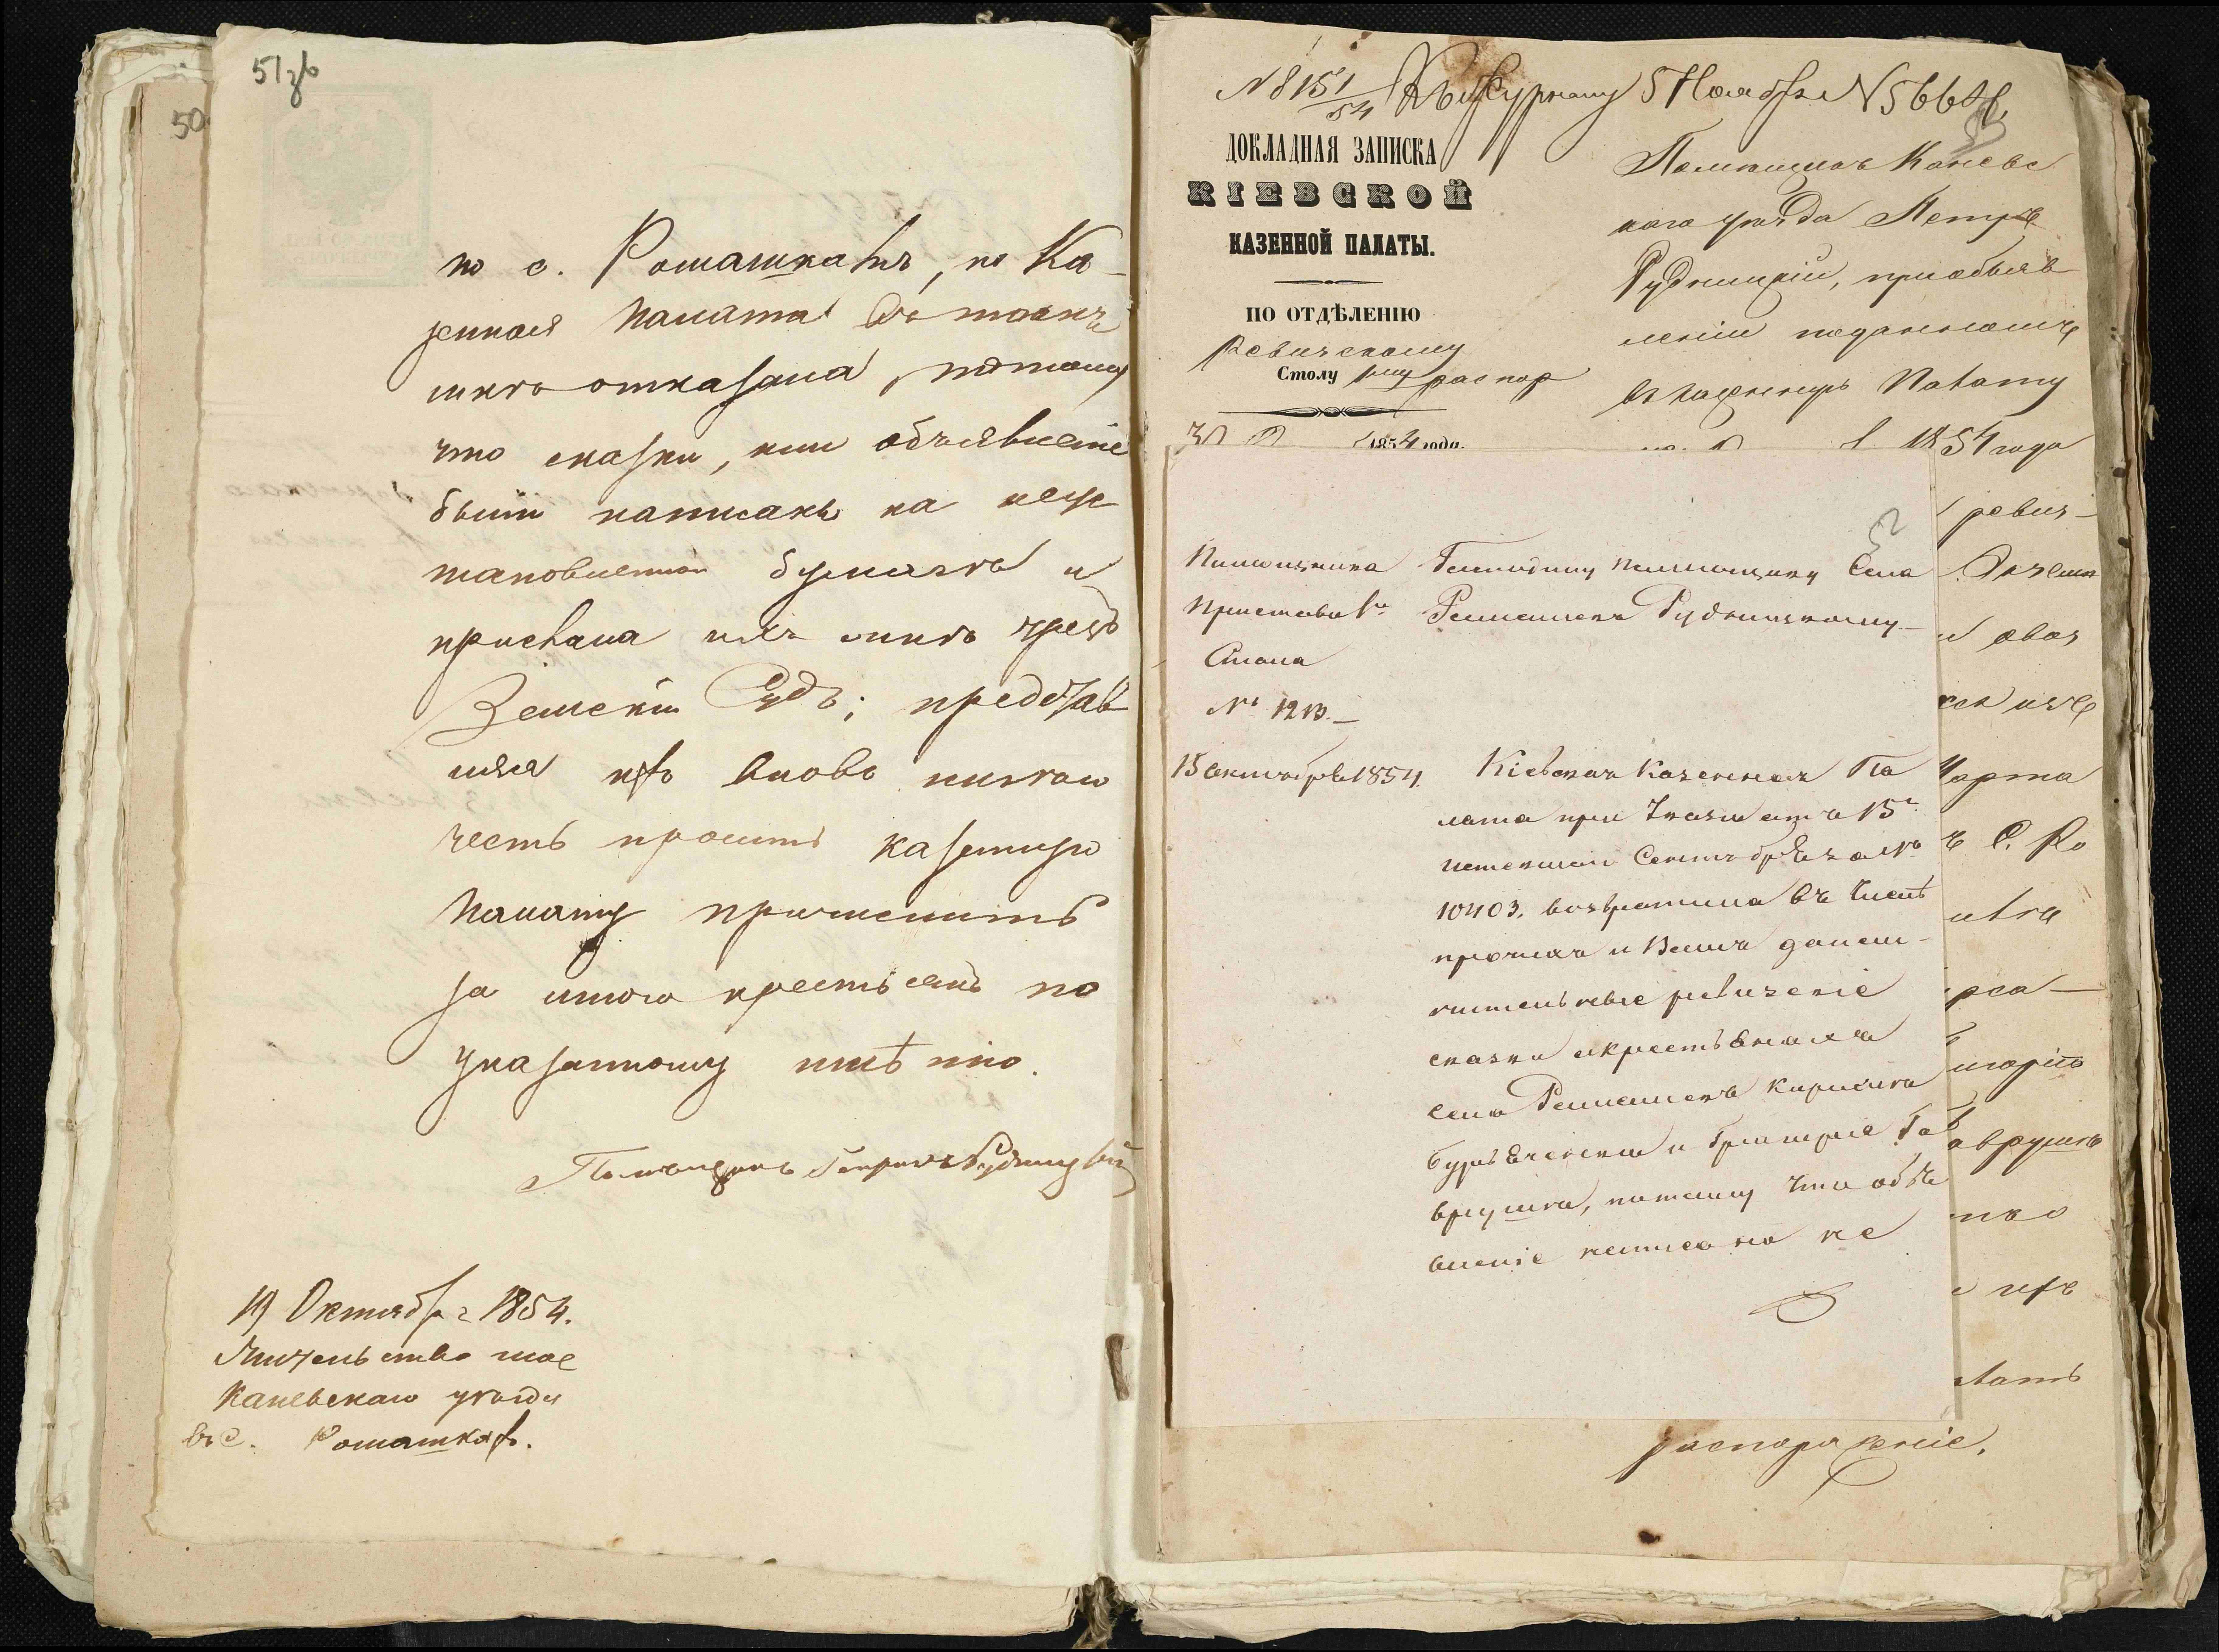 51 зв
50
по с. Ромашкахъ, но Ка-
зенная Палата въ томъ
мнѣ отказала, потому
что сказки, или объявленіе
были написаны на неус
тановленной бумагѣ и
прислала ихъ мнѣ чрезъ
Земскій Судъ; представ
ляя ихъ вновь имѣю
честь просить Казенную
Палату причислить
за мною крестьянъ по
указанному имѣнію.
Помѣщикъ Петръ Рудницкій
19 Октября 1854.
Жительство мое
Каневскаго уѣзда
въ с. Ромашкахъ.
№ 8151/54 Къ Журналу 5 Ноября № 5664
ДОКЛАДНАЯ ЗАПИСКА
КІЕВСКОЙ
КАЗЕННОЙ ПАЛАТЫ.
ПО ОТДѢЛЕНІЮ
Ревизскому
Столу 1му распор
1854 года.
53
Помѣщикъ Каневс
каго уѣзда Петръ
Рудницкій, при объяв
леніи поданномъ
въ Казенную Палату
1854 года
ревиз-
и двоя
Марта
с. Ро
аврушко
ихъ
распоряженіе.
52
Помощника
Пристава 1го
Стана
№ 1213.
15 октября 1854
Господину помѣщику села
Ромашекъ Рудницкому
Кіевская Казенная Па
лата при Указѣ отъ 15
истекшаго Сентября за №
10403. возвратила въ числѣ
прочихъ и Ваши допол-
нительные ревизскіе
сказки о крестьянахъ
села Ромашекъ Кирилѣ
и Григоріѣ Га
врушкѣ, потому что объя
вленіе написано не